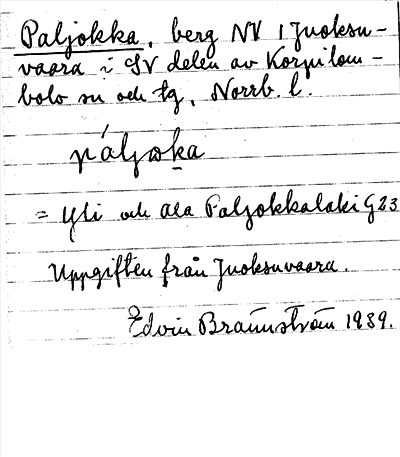 Paljokka, berg NV i Juoksu-
vaara i SV delen av Korpilom-
bolo sn och tg, Norrb. l.
páljoka
= Yli och Ala Paljokkalaki G23
Uppgiften från Juoksuvaara.
Edvin Brännström 1939.